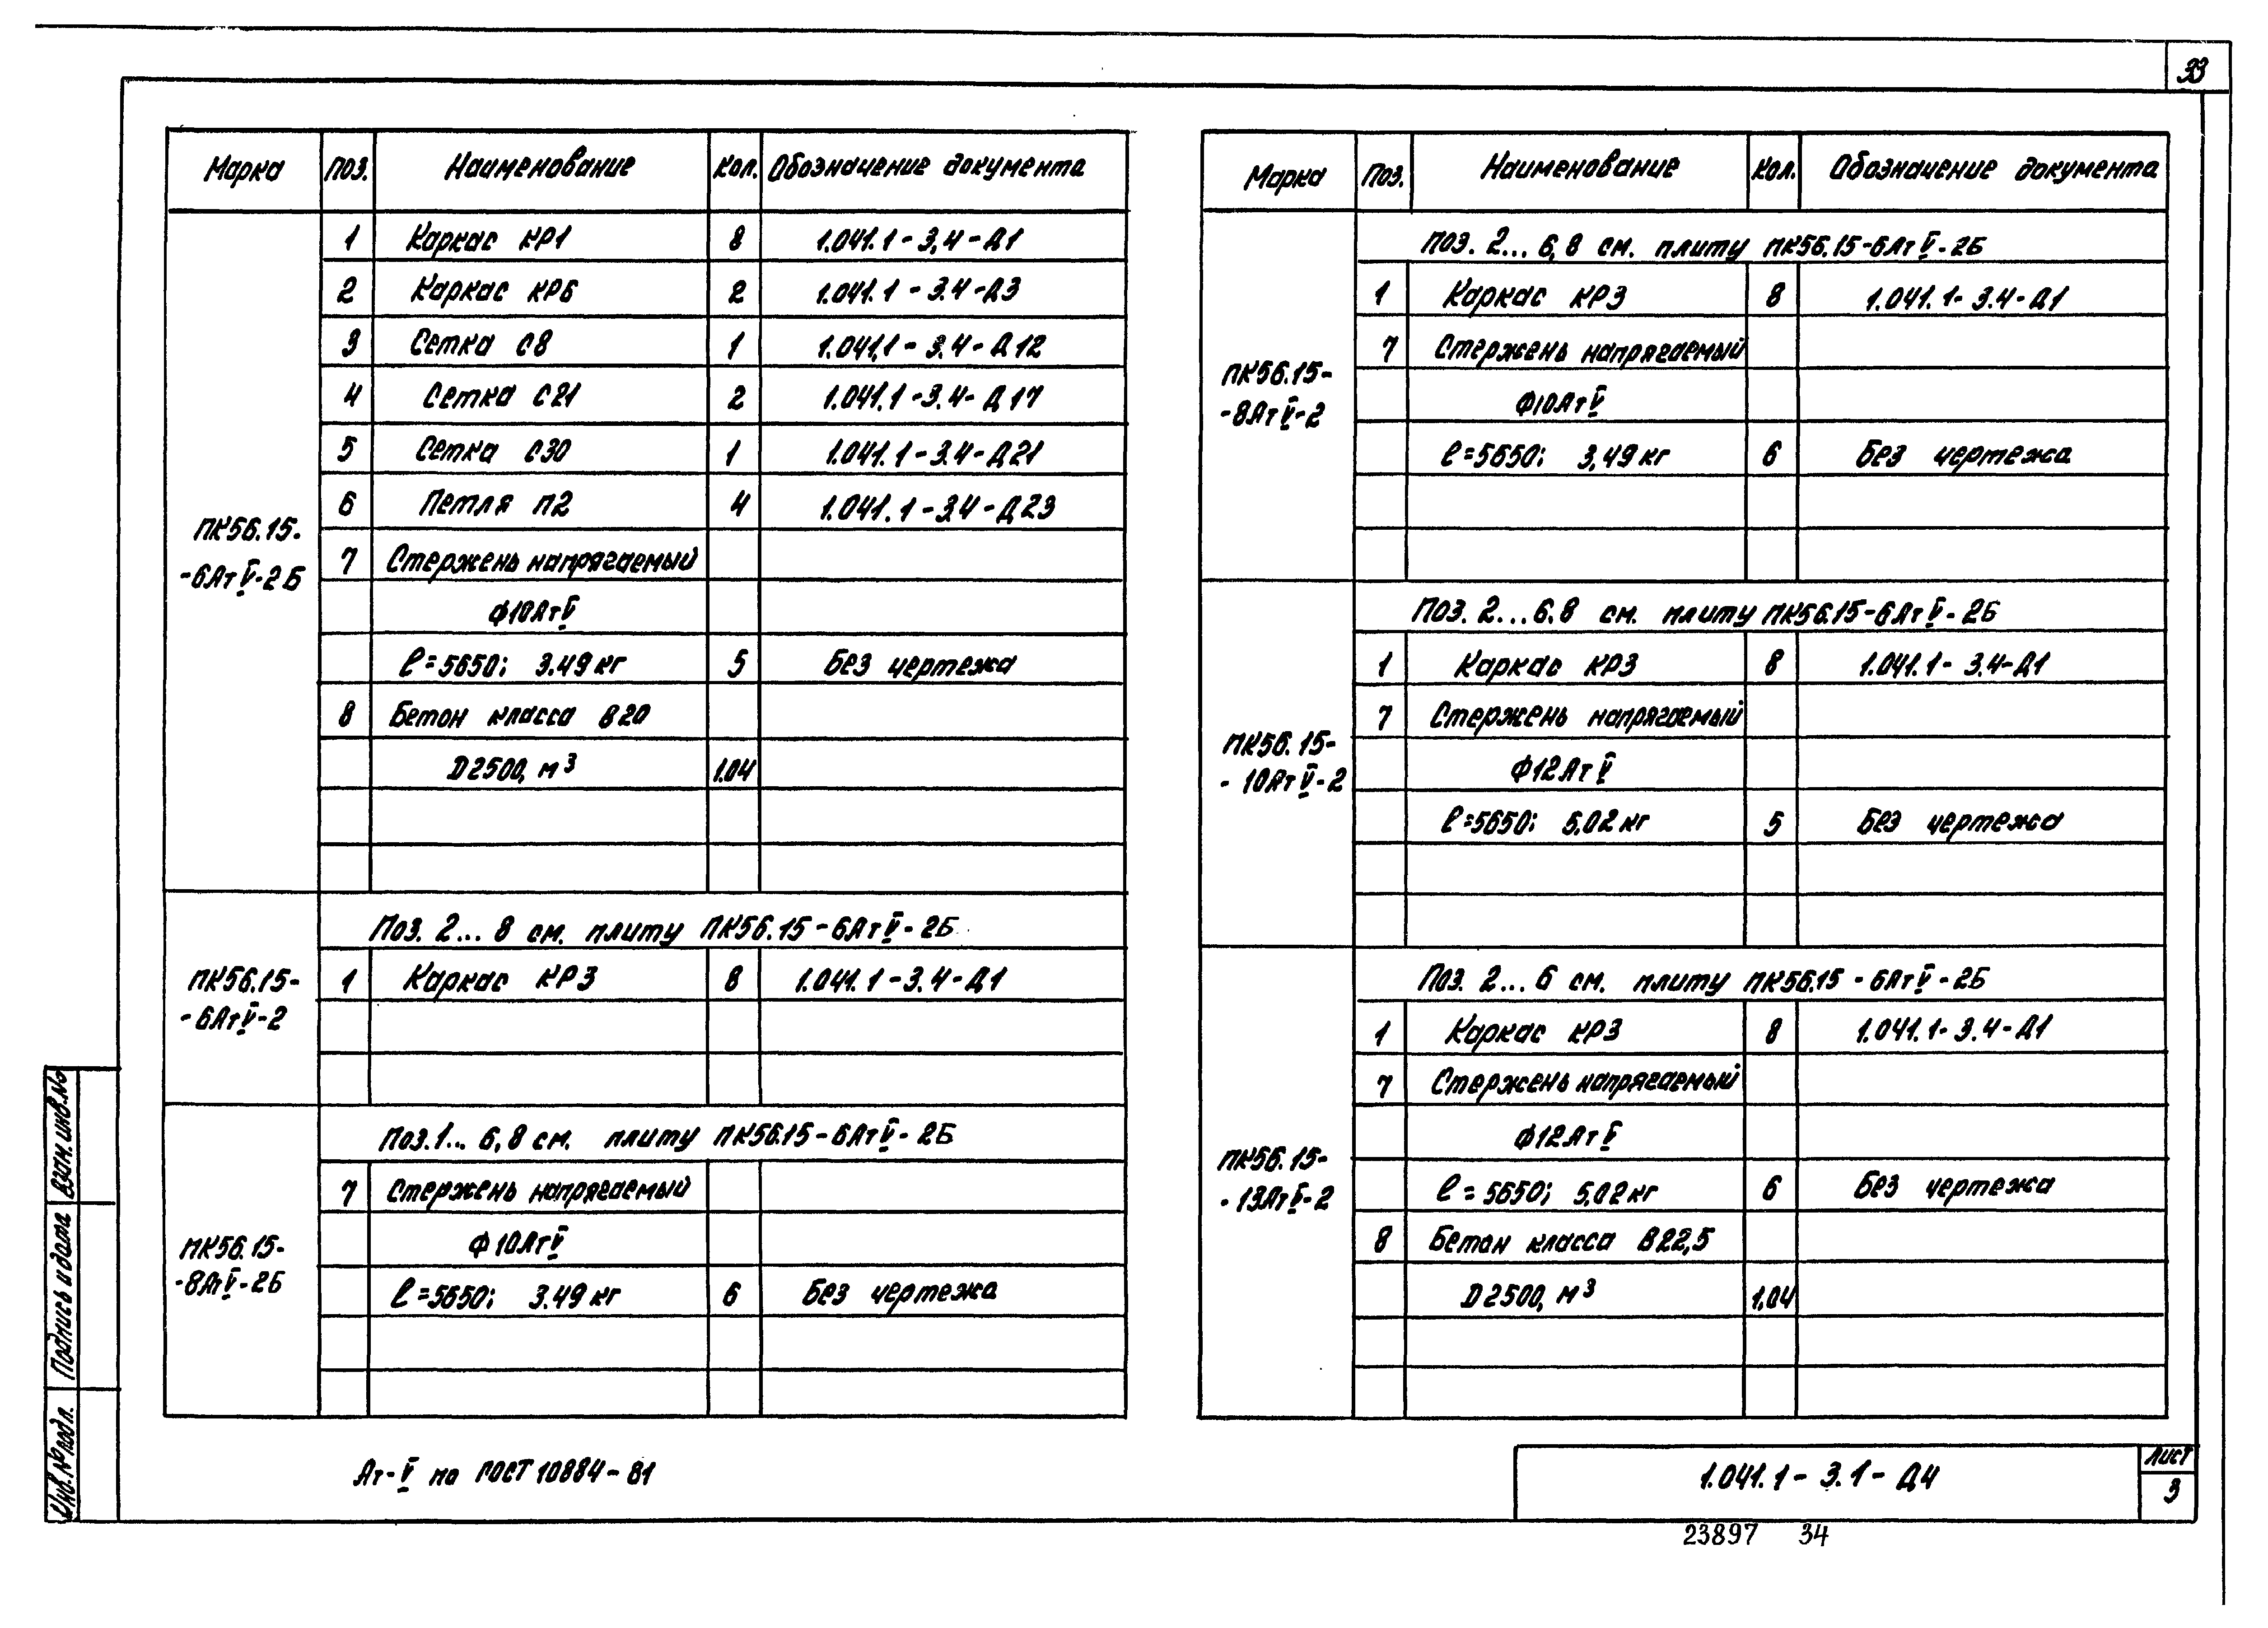 33
Марка Поз. Наименование Кол. Обозначение документа
1 Каркас КР1 8 1.041.1-3.4-Д1
2 Каркас КР6 2 1.041.1-3.4-Д3
3 Сетка С8 1 1.041.1-3.4-Д12
4 Сетка С21 2 1.041.1-3.4-Д17
5 Сетка С30 1 1.041.1-3.4-Д21
6 Петля П2 4 1.041.1-3.4-Д23
ПК56.15-
-6АтV-2Б
7 Стержень напрягаемый
Ф10АтV
ℓ=5650; 3.49 кг 5 Без чертежа
8 Бетон класса В20
D2500, м³ 1.04
Поз. 2...8 см. плиту ПК56.15-6АтV-2Б
ПК56.15-
-6АтV-2
1 Каркас КР3 8 1.041.1-3.4-Д1
Поз. 1...6,8 см. плиту ПК56.15-6АтV-2Б
ПК56.15-
-8АтV-2Б
7 Стержень напрягаемый
Ф10АтV
ℓ=5650; 3.49 кг 6 Без чертежа
Марка Поз. Наименование Кол. Обозначение документа
Поз. 2...6,8 см. плиту ПК56.15-6АтV-2Б
ПК56.15-
-8АтV-2
1 Каркас КР3 8 1.041.1-3.4-Д1
7 Стержень напрягаемый
Ф10АтV
ℓ=5650; 3,49 кг 6 Без чертежа
Поз. 2...6.8 см. плиту ПК56.15-6АтV-2Б
ПК56.15-
-10АтV-2
1 Каркас КР3 8 1.041.1-3.4-Д1
7 Стержень напрягаемый
Ф12АтV
ℓ=5650; 5.02 кг 5 Без чертежа
Поз. 2...6 см. плиту ПК56.15-6АтV-2Б
ПК56.15-
-13АтV-2
1 Каркас КР3 8 1.041.1-3.4-Д1
7 Стержень напрягаемый
Ф12АтV
ℓ=5650; 5,02 кг 6 Без чертежа
8 Бетон класса В22,5
D2500, м³ 1,04
Ат-V по ГОСТ 10884-81
1.041.1-3.1-Д4
Лист
3
23897 34
Взам. инв.№
Подпись и дата
Инв.№ подл.